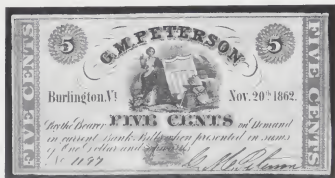 5 G.M. PETERSON 5
FIVE CENTS
FIVE CENTS
Burlington, Vt. Nov. 20th 1862.
FIVE CENTS
Pay the Bearer on Demand
in current Bank Bills when presented in sums
of One Dollar and upwards
No 1197 G. M. Peterson